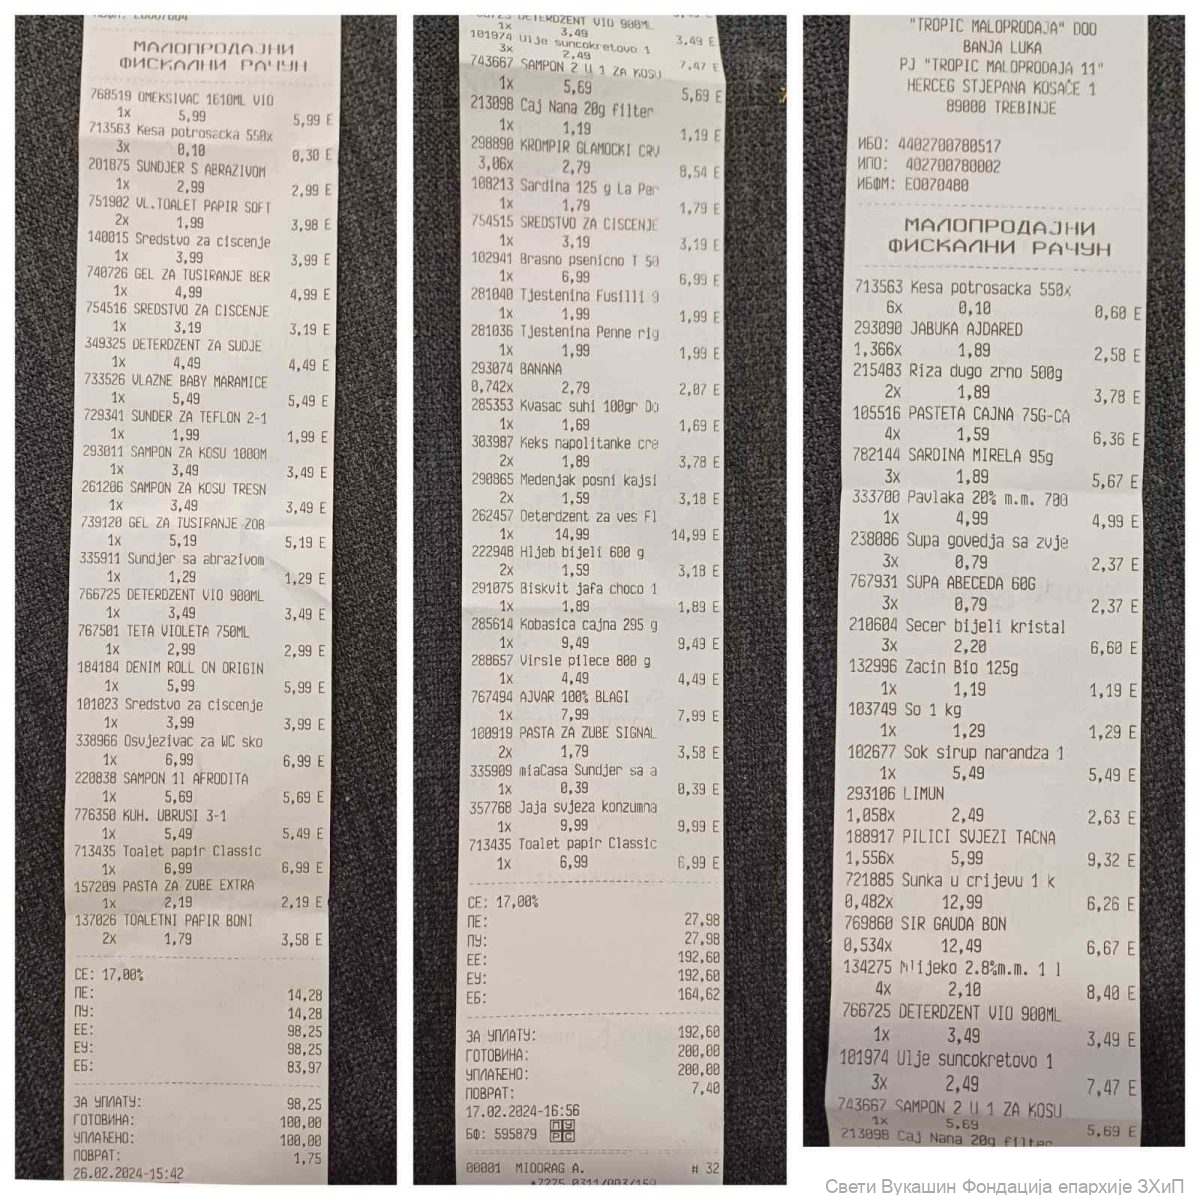 МАЛОПРОДАЈНИ
ФИСКАЛНИ РАЧУН
768519 OMEKSIVAC 1610ML VIO
1x 5,99 5,99 E
713563 Kesa potrosacka 550x
3x 0,10 0,30 E
201875 SUNDJER S ABRAZIVOM
1x 2,99 2,99 E
751902 VL.TOALET PAPIR SOFT
2x 1,99 3,98 E
140015 Sredstvo za ciscenje
1x 3,99 3,99 E
740726 GEL ZA TUSIRANJE BER
1x 4,99 4,99 E
754516 SREDSTVO ZA CISCENJE
1x 3,19 3,19 E
349325 DETERDZENT ZA SUDJE
1x 4,49 4,49 E
733526 VLAZNE BABY MARAMICE
1x 5,49 5,49 E
729341 SUNDER ZA TEFLON 2-1
1x 1,99 1,99 E
293011 SAMPON ZA KOSU 1000M
1x 3,49 3,49 E
261206 SAMPON ZA KOSU TRESN
1x 3,49 3,49 E
739120 GEL ZA TUSIRANJE ZOB
1x 5,19 5,19 E
335911 Sundjer sa abrazivom
1x 1,29 1,29 E
766725 DETERDZENT VIO 900ML
1x 3,49 3,49 E
767501 TETA VIOLETA 750ML
1x 2,99 2,99 E
184184 DENIM ROLL ON ORIGIN
1x 5,99 5,99 E
101023 Sredstvo za ciscenje
1x 3,99 3,99 E
338966 Osvjezivac za WC sko
1x 6,99 6,99 E
220838 SAMPON 1l AFRODITA
1x 5,69 5,69 E
776350 KUH. UBRUSI 3-1
1x 5,49 5,49 E
713435 Toalet papir Classic
1x 6,99 6,99 E
157209 PASTA ZA ZUBE EXTRA
1x 2,19 2,19 E
137026 TOALETNI PAPIR BONI
2x 1,79 3,58 E
СЕ: 17,00%
ПЕ: 14,28
ПУ: 14,28
ЕЕ: 98,25
ЕУ: 98,25
ЕБ: 83,97
ЗА УПЛАТУ: 98,25
ГОТОВИНА: 100,00
УПЛАЋЕНО: 100,00
ПОВРАТ: 1,75
26.02.2024-15:42
DETERDZENT VIO 900ML
3,49 3,49 E
101974 Ulje suncokretovo 1
3x 2,49 7,47 E
743667 SAMPON 2 U 1 ZA KOSU
1x 5,69 5,69 E
213098 Caj Nana 20g filter
1x 1,19 1,19 E
298890 KROMPIR GLAMOCKI CRV
3,06x 2,79 8,54 E
108213 Sardina 125 g La Per
1x 1,79 1,79 E
754515 SREDSTVO ZA CISCENJE
1x 3,19 3,19 E
102941 Brasno psenicno T 50
1x 6,99 6,99 E
281040 Tjestenina Fusilli 9
1x 1,99 1,99 E
281036 Tjestenina Penne rig
1x 1,99 1,99 E
293074 BANANA
0,742x 2,79 2,07 E
285353 Kvasac suhi 100gr Do
1x 1,69 1,69 E
303987 Keks napolitanke cre
2x 1,89 3,78 E
290865 Medenjak posni kajsi
2x 1,59 3,18 E
262457 Deterdzent za ves Fl
1x 14,99 14,99 E
222948 Hljeb bijeli 600 g
2x 1,59 3,18 E
291075 Biskvit jafa choco 1
1x 1,89 1,89 E
285614 Kobasica cajna 295 g
1x 9,49 9,49 E
288657 Virsle pilece 800 g
1x 4,49 4,49 E
767494 AJVAR 100% BLAGI
1x 7,99 7,99 E
100919 PASTA ZA ZUBE SIGNAL
2x 1,79 3,58 E
335909 miaCasa Sundjer sa a
1x 0,39 0,39 E
357768 Jaja svjeza konzumna
1x 9,99 9,99 E
713435 Toalet papir Classic
1x 6,99 6,99 E
СЕ: 17,00%
ПЕ: 27,98
ПУ: 27,98
ЕЕ: 192,60
ЕУ: 192,60
ЕБ: 164,62
ЗА УПЛАТУ: 192,60
ГОТОВИНА: 200,00
УПЛАЋЕНО: 200,00
ПОВРАТ: 7,40
17.02.2024-16:56
БФ: 595879 ПУРС
00001 MIODRAG A. # 32
"TROPIC MALOPRODAJA" DOO
BANJA LUKA
PJ "TROPIC MALOPRODAJA 11"
HERCEG STJEPANA KOSAČE 1
89000 TREBINJE
ИБО: 4402700780517
ИПО: 402700780002
ИБФМ: EO070480
МАЛОПРОДАЈНИ
ФИСКАЛНИ РАЧУН
713563 Kesa potrosacka 550x
6x 0,10 0,60 E
293090 JABUKA AJDARED
1,366x 1,89 2,58 E
215483 Riza dugo zrno 500g
2x 1,89 3,78 E
105516 PASTETA CAJNA 75G-CA
4x 1,59 6,36 E
782144 SARDINA MIRELA 95g
3x 1,89 5,67 E
333700 Pavlaka 20% m.m. 700
1x 4,99 4,99 E
238086 Supa govedja sa zvje
3x 0,79 2,37 E
767931 SUPA ABECEDA 60G
3x 0,79 2,37 E
210604 Secer bijeli kristal
3x 2,20 6,60 E
132996 Zacin Bio 125g
1x 1,19 1,19 E
103749 So 1 kg
1x 1,29 1,29 E
102677 Sok sirup narandza 1
1x 5,49 5,49 E
293106 LIMUN
1,058x 2,49 2,63 E
188917 PILICI SVJEZI TACNA
1,556x 5,99 9,32 E
721885 Sunka u crijevu 1 k
0,482x 12,99 6,26 E
769860 SIR GAUDA BON
0,534x 12,49 6,67 E
134275 Mlijeko 2.8%m.m. 1 l
4x 2,10 8,40 E
766725 DETERDZENT VIO 900ML
1x 3,49 3,49 E
101974 Ulje suncokretovo 1
3x 2,49 7,47 E
743667 SAMPON 2 U 1 ZA KOSU
1x 5,69 5,69 E
213098 Caj Nana 20g filter
Свети Вукашин Фондација епархије ЗХиП